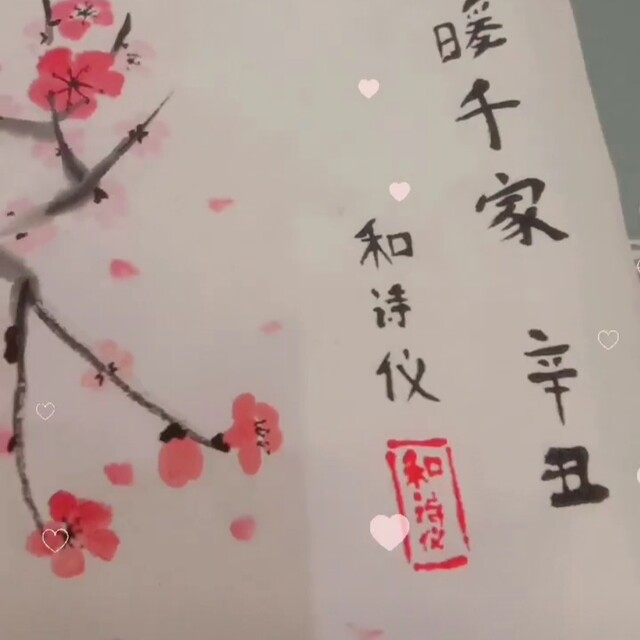 暖千家
辛丑
和诗仪
和诗仪